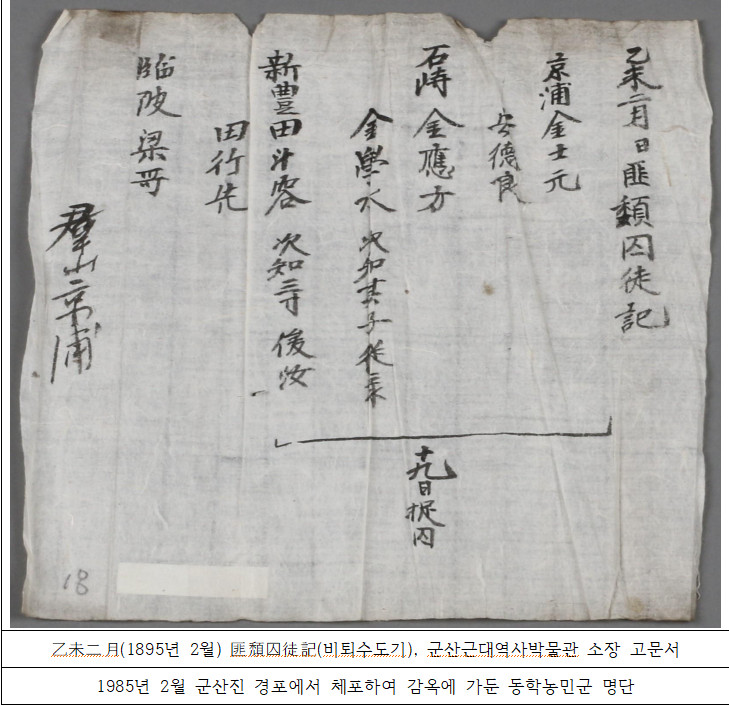 乙未二月日匪類囚徒記
京浦金士元
安德良
石峙 金應方
金學水 次知其子從来
新豊田斗容 次知三寸 俊汝
田行先
臨陂 梁哥
群山京浦
十九日捉囚
18
乙未二月(1895년 2월) 匪頹囚徒記(비퇴수도기), 군산근대역사박물관 소장 고문서
1985년 2월 군산진 경포에서 체포하여 감옥에 가둔 동학농민군 명단